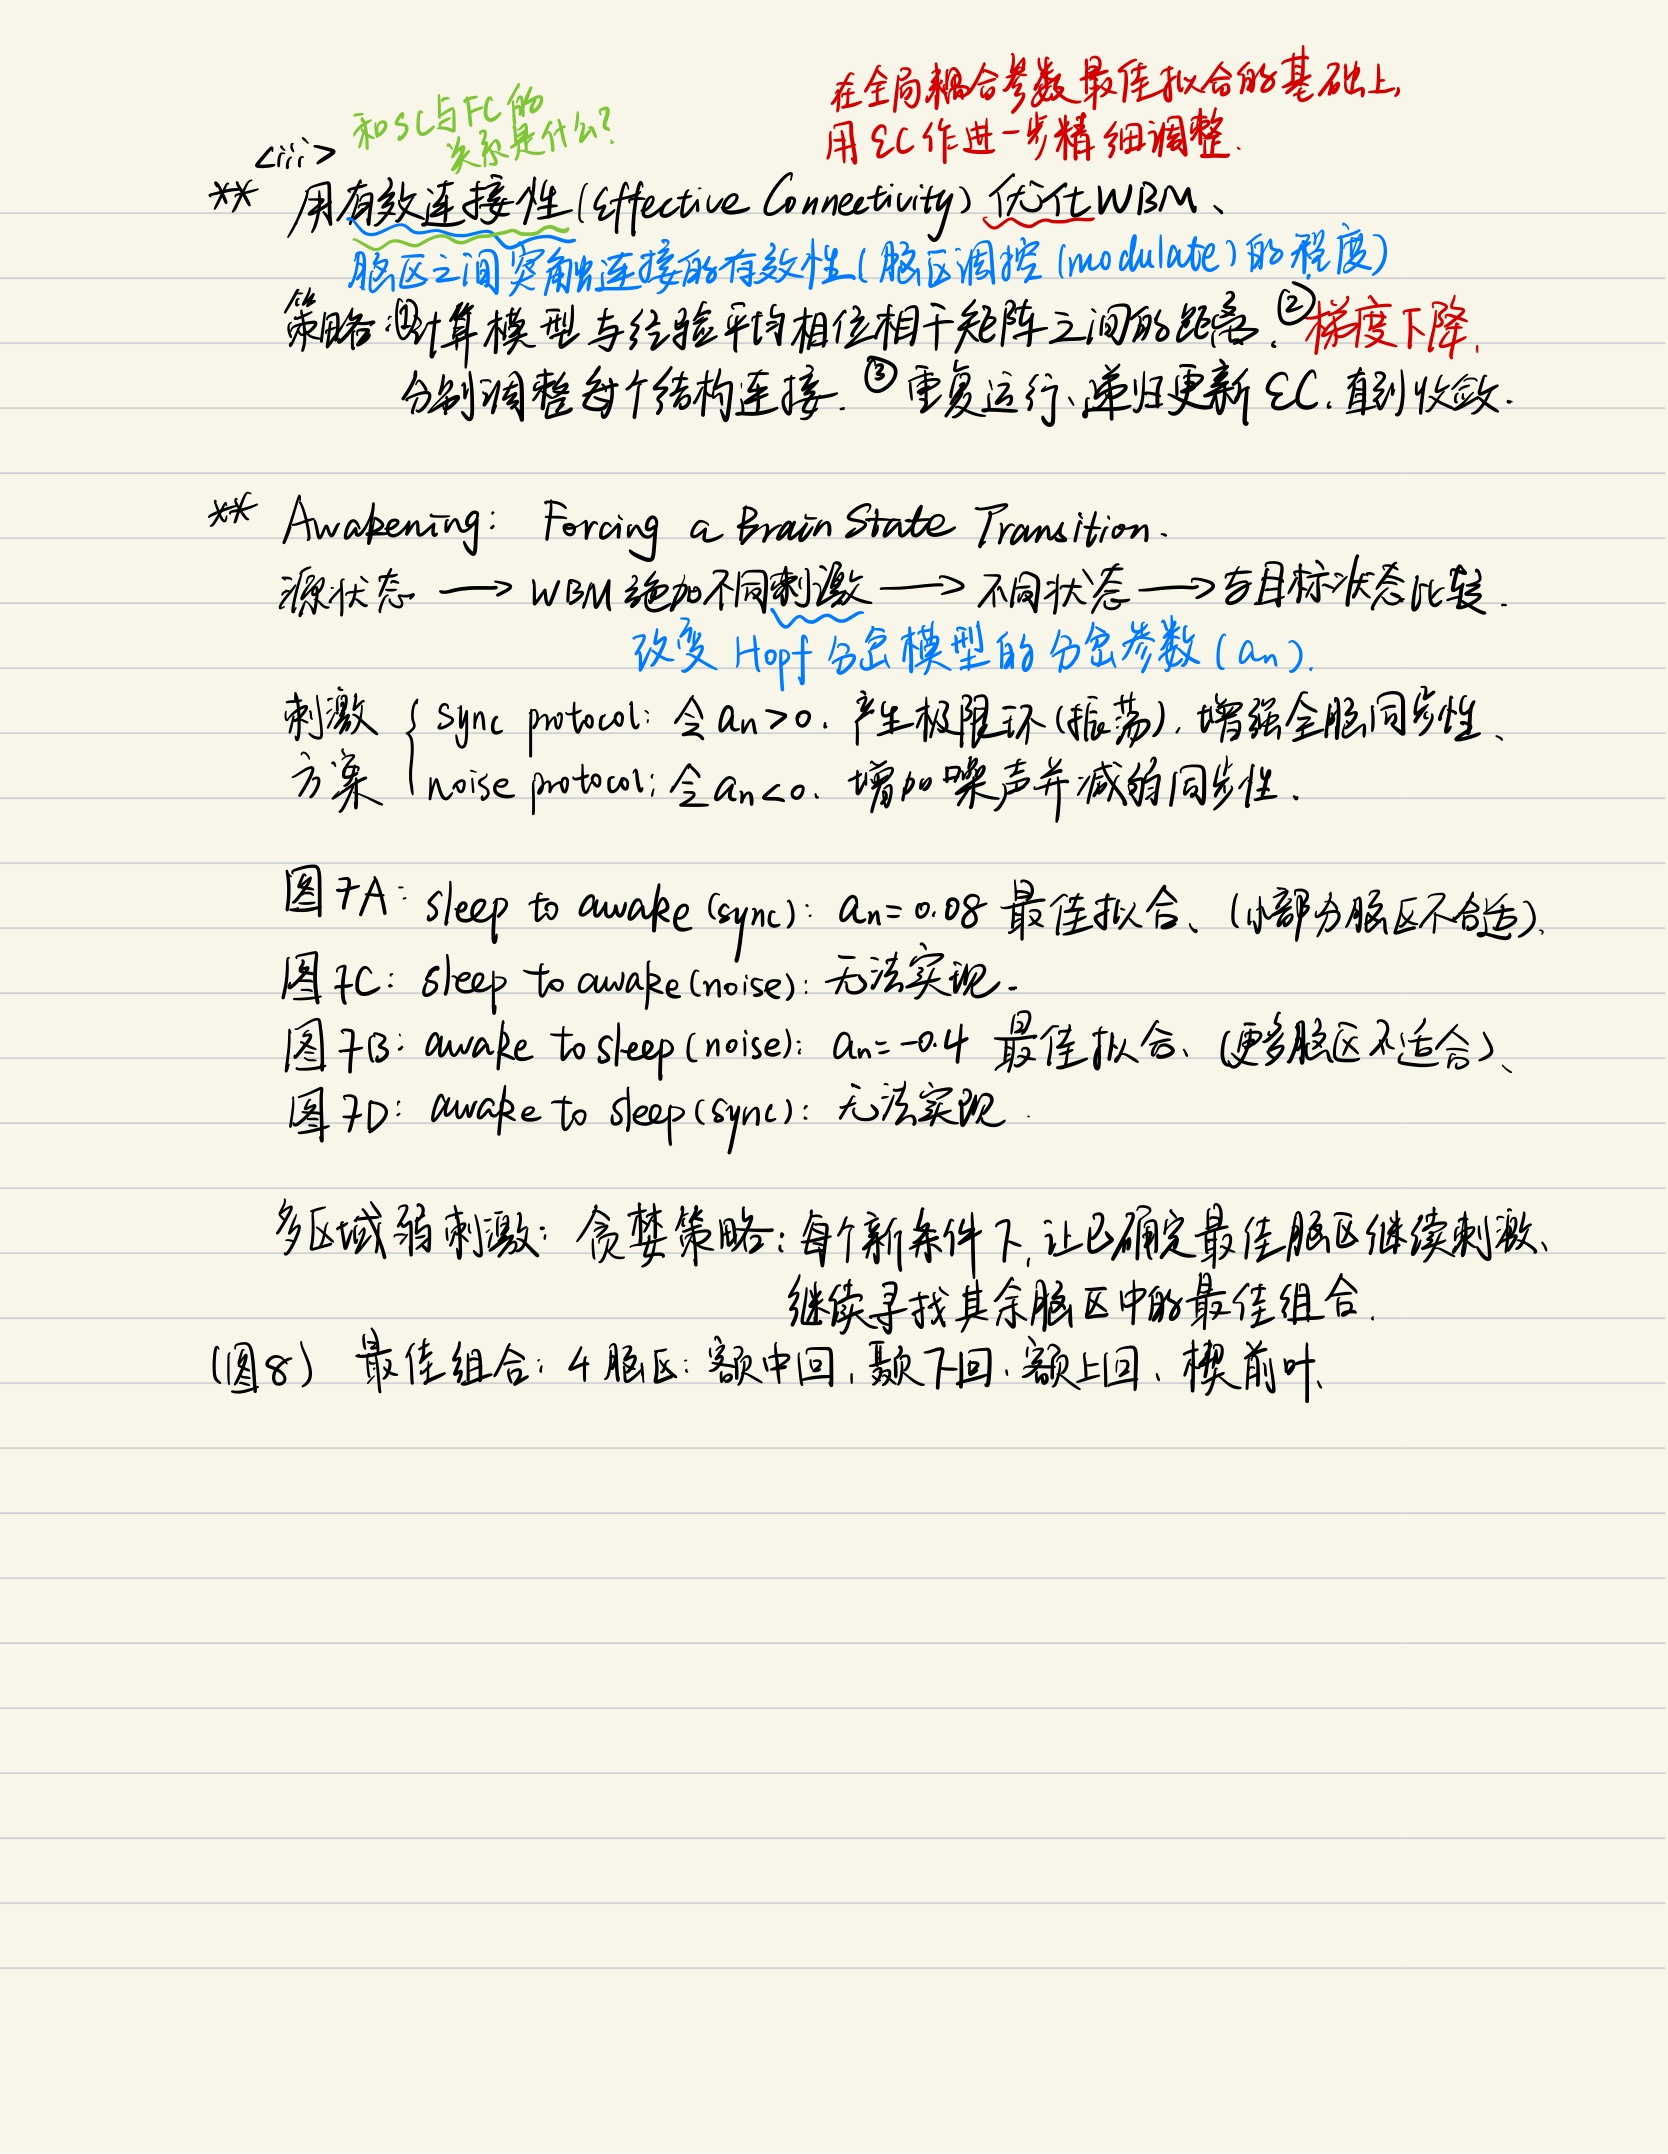 和SC与FC的
关系是什么?
在全局耦合参数最佳拟合的基础上,
用EC作进一步精细调整.
<iii>
** 用有效连接性(Effective Connectivity)优化WBM、
脑区之间突触连接的有效性(脑区调控(modulate)的程度)
策略:①计算模型与经验平均相位相干矩阵之间的距离.②梯度下降,
分别调整每个结构连接.③重复运行、递归更新EC.直到收敛.
** Awakening: Forcing a Brain State Transition.
源状态 → WBM施加不同刺激 → 不同状态 → 与目标状态比较.
改变Hopf分岔模型的分岔参数(an).
刺激方案 { sync protocol: 令an>0. 产生极限环(振荡),增强全脑同步性、
noise protocol: 令an<0. 增加噪声并减弱同步性.
图7A: sleep to awake(sync): an=0.08 最佳拟合、(小部分脑区不合适).
图7C: sleep to awake(noise): 无法实现.
图7B: awake to sleep(noise): an=-0.4 最佳拟合、(更多脑区不适合)、
图7D: awake to sleep(sync): 无法实现.
多区域弱刺激: 贪婪策略: 每个新条件下,让已确定最佳脑区继续刺激、
继续寻找其余脑区中的最佳组合.
(图8) 最佳组合: 4脑区: 额中回,颞下回,额上回、楔前叶、